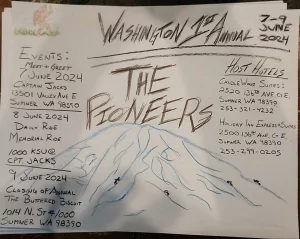 WASHINGTON 1ST ANNUAL
7-9
JUNE
2024
THE
PIONEERS
EVENTS:
MEET & GREET
7 JUNE 2024
CAPTAIN JACKS
13501 VALLEY AVE E
SUMNER WA 98390
8 JUNE 2024
MEMORIAL RDE
1000 KSU@
CPT. JACKS
9 JUNE 2024
CLOSING OF ANNUAL
THE BUTTERED BISCUIT
1014 N. ST @ 1000
SUMNER WA 98390
HOST HOTELS
SUITES:
2520 136TH AVE E.
SUMNER WA 98390
253-321-4232
HOLIDAY INN EXPRESS & SUITES
2500 136TH AVE, C.E.
SUMNER WA 98390
253-299-0205